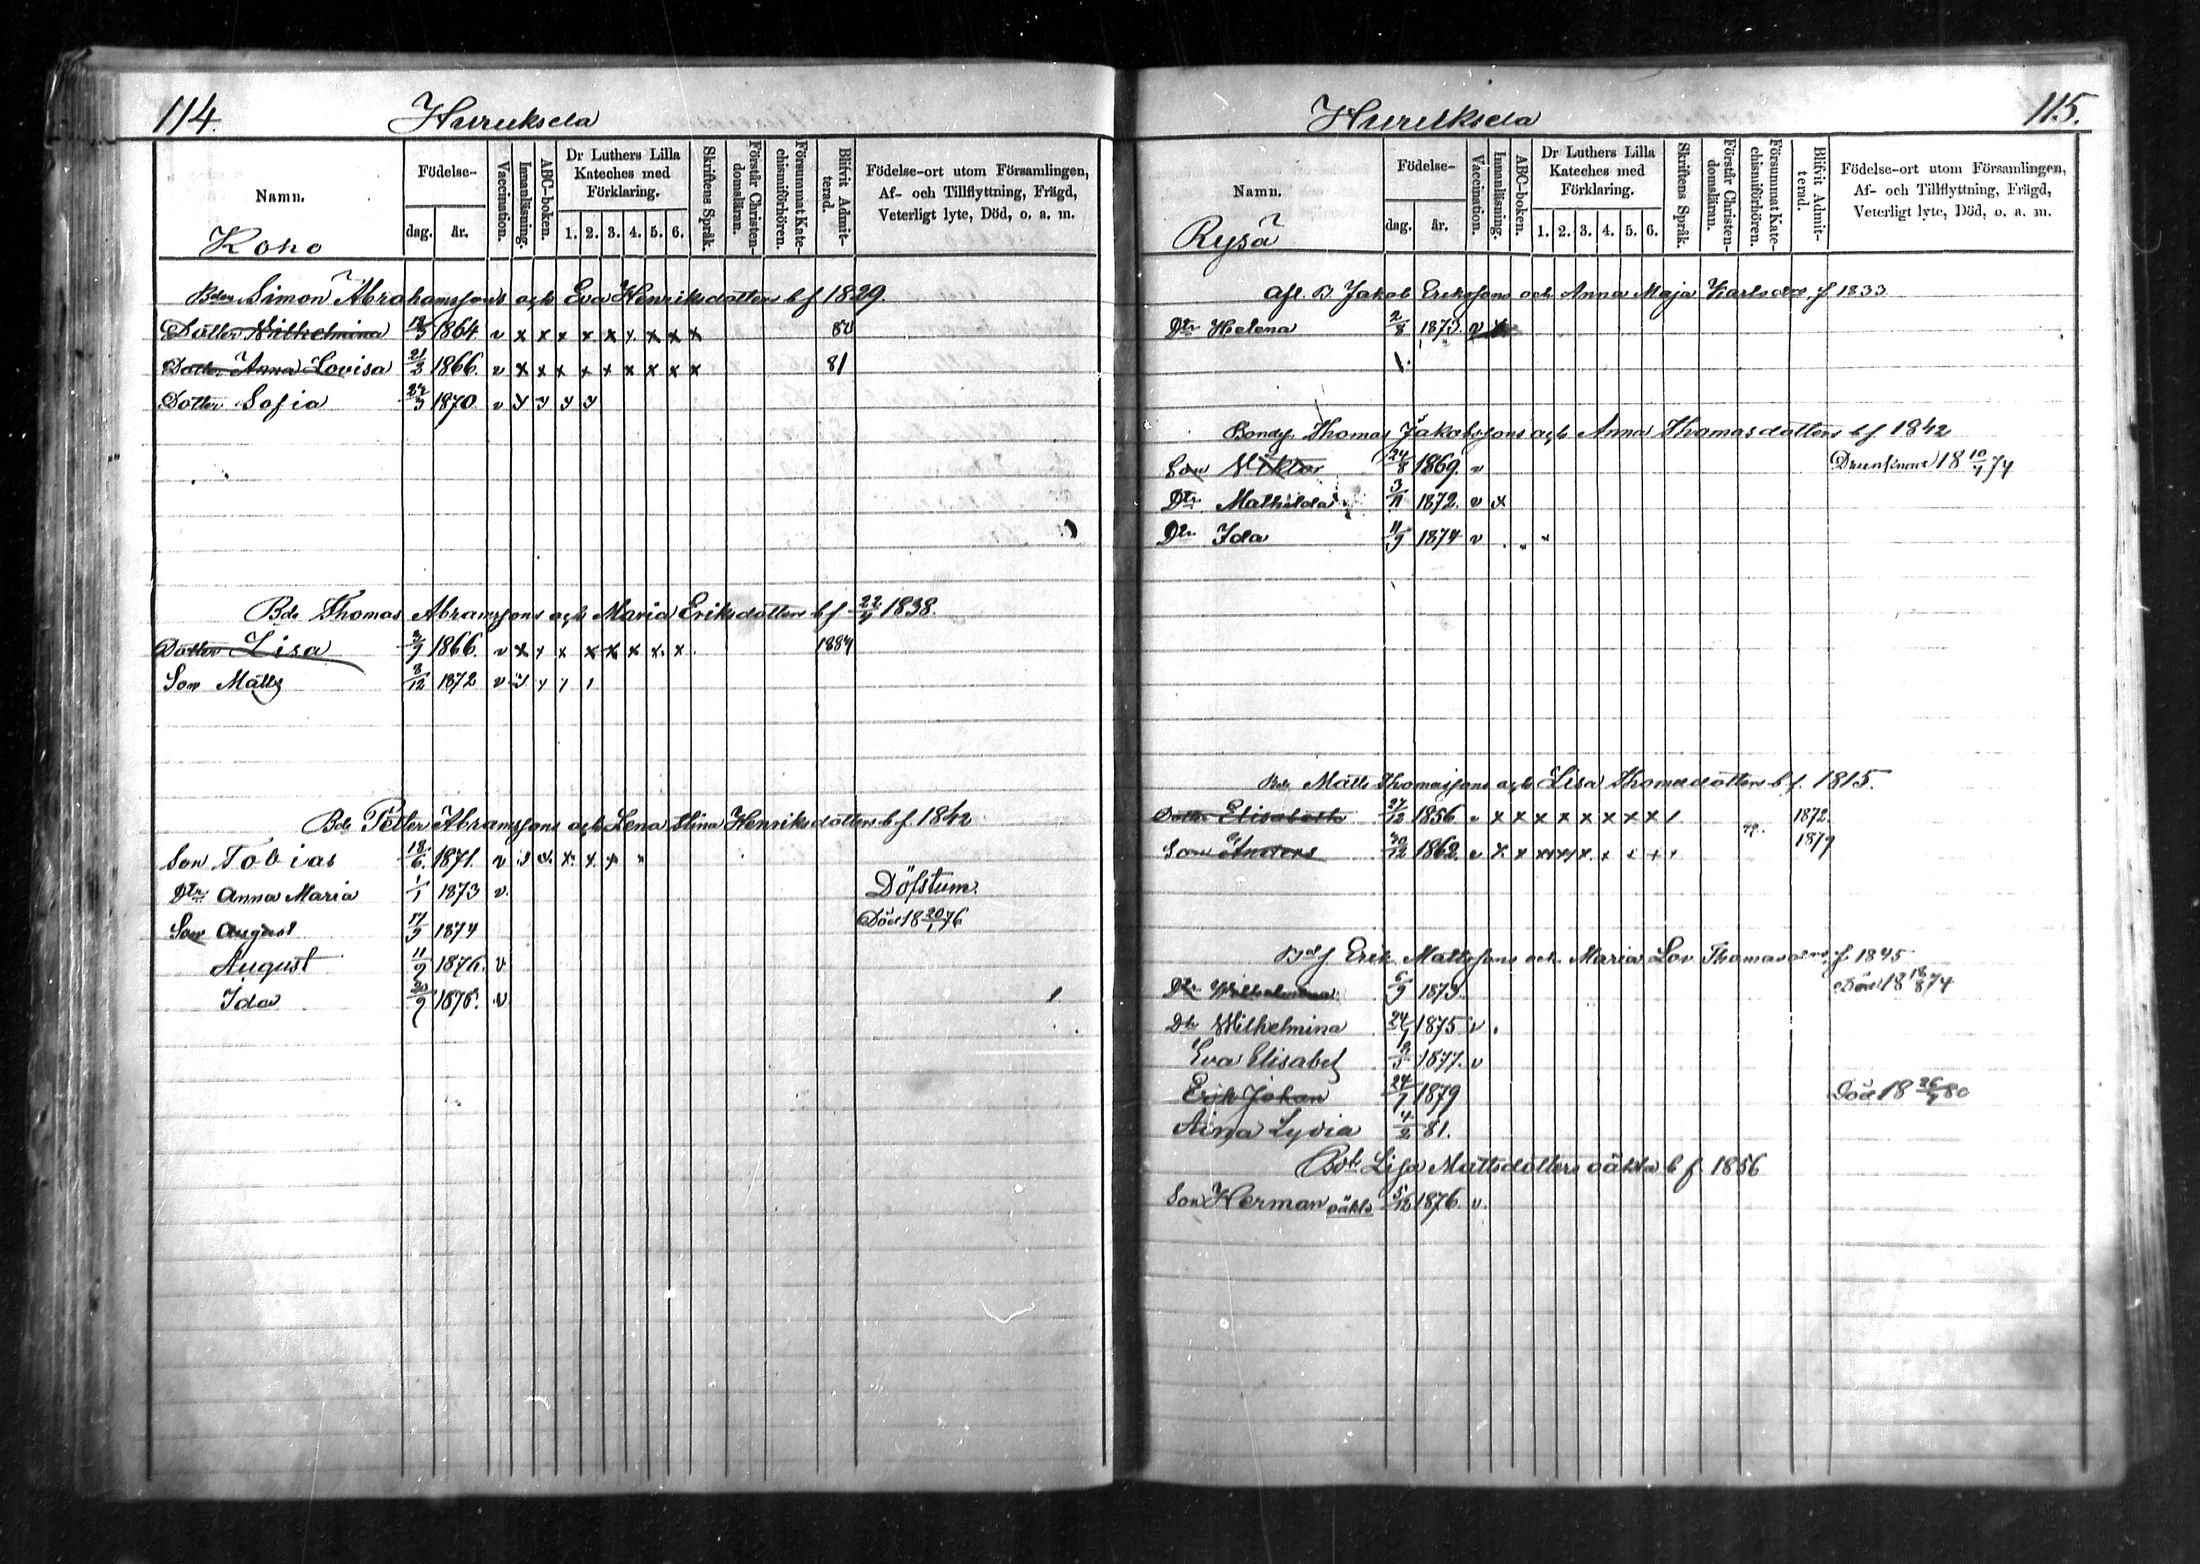 114. Huruksela
Namn. Födelse- Vaccination. Innanläsning. ABC-boken. Dr Luthers Lilla Kateches med Förklaring. Skriftens Språk. Förstår Christen-domsläran. Försummat Kate-chismiförhören. Blifvit Admit-terad. Födelse-ort utom Församlingen, Af- och Tillflyttning, Frägd, Veterligt lyte, Död, o. a. m.
dag. år. 1. 2. 3. 4. 5. 6.
Koho
Simon Abrahamssons och Eva Henriksdotters b f 1829.
Dotter Wilhelmina 1864 v x x x x x x x x x 80
Dotter Anna Lovisa 21/3 1866. v x x x x x x x x x 81
Dotter Sofia 1870. v
Bde Thomas Abramssons och Maria Eriksdotters b f 1838.
Dotter Lisa 1866. v x x x x x x x x 1884
Son Matts 8/12 1872 v
Bde Petter Abramssons och Lena Stina Henriksdotters b f. 1842
Son Tobias 18/6 1871. v
Dtr Anna Maria 1/1 1873 v. Döfstum.
Son August 17/3 1874 Död 18 20/1 76
August 11/9 1876. v
Ida 1878. v
Huruksela 115.
Namn. Födelse- Vaccination. Innanläsning. ABC-boken. Dr Luthers Lilla Kateches med Förklaring. Skriftens Språk. Förstår Christen-domsläran. Försummat Kate-chismiförhören. Blifvit Admit-terad. Födelse-ort utom Församlingen, Af- och Tillflyttning, Frägd, Veterligt lyte, Död, o. a. m.
dag. år. 1. 2. 3. 4. 5. 6.
Rysä
Afl. B Jakob Erikssons och Anna Maja Karlsdtrs. f 1833
Dtr Helena 2/8 1873. v
Thomas Jakobssons och Anna Thomasdotters b f 1842
Son Viktor 24/8 1869. v Drunknad 18 10/7 74
Dtr Mathilda 3/11 1872. v x
Dtr Ida 11/9 1874 v
Bde Matts Thomassons och Lisa Thomasdotters b f. 1815.
Dotter Elisabeth 27/12 1856 v x x x x x x x x 1872
Son Anders 30/12 1862. v x x x x x 1879
Erik Mattssons och Maria Lov. Thomasdtrs f 1845
Dtr Wilhelmina 1873. Död 18 18/8 74
Dtr Wilhelmina 24/1 1875 v
Eva Elisabet 1877. v
Erik Johan 24/7 1879 Död 18 80
Aina Lydia 4/2 81.
Lisa Mattsdotters oäkta b f. 1856
Son Herman oäkta 5/12 1876. v.